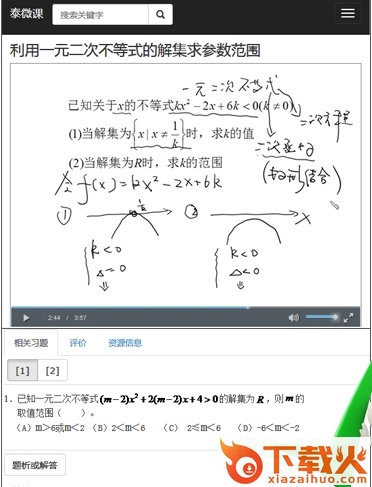 泰微课
搜索关键字
利用一元二次不等式的解集求参数范围
一元二次不等式
已知关于x的不等式kx²-2x+6k<0(k≠0)
二次方程
(1)当解集为{x|x≠1/k}时，求k的值
二次函数
(2)当解集为R时，求k的范围
(数形结合)
令f(x)=kx²-2x+6k
① 1/k ② x
k<0 k<0
△=0 △<0
⇓ ⇓
2:44 / 3:57
相关习题 评价 资源信息
[1] [2]
1. 已知一元二次不等式(m-2)x²+2(m-2)x+4>0的解集为R，则m的
取值范围（ ）。
（A）m>6或m<2 （B）2<m<6 （C） 2≤m<6 （D）-6<m<-2
题析或解答
下载火
xiazaihuo.com